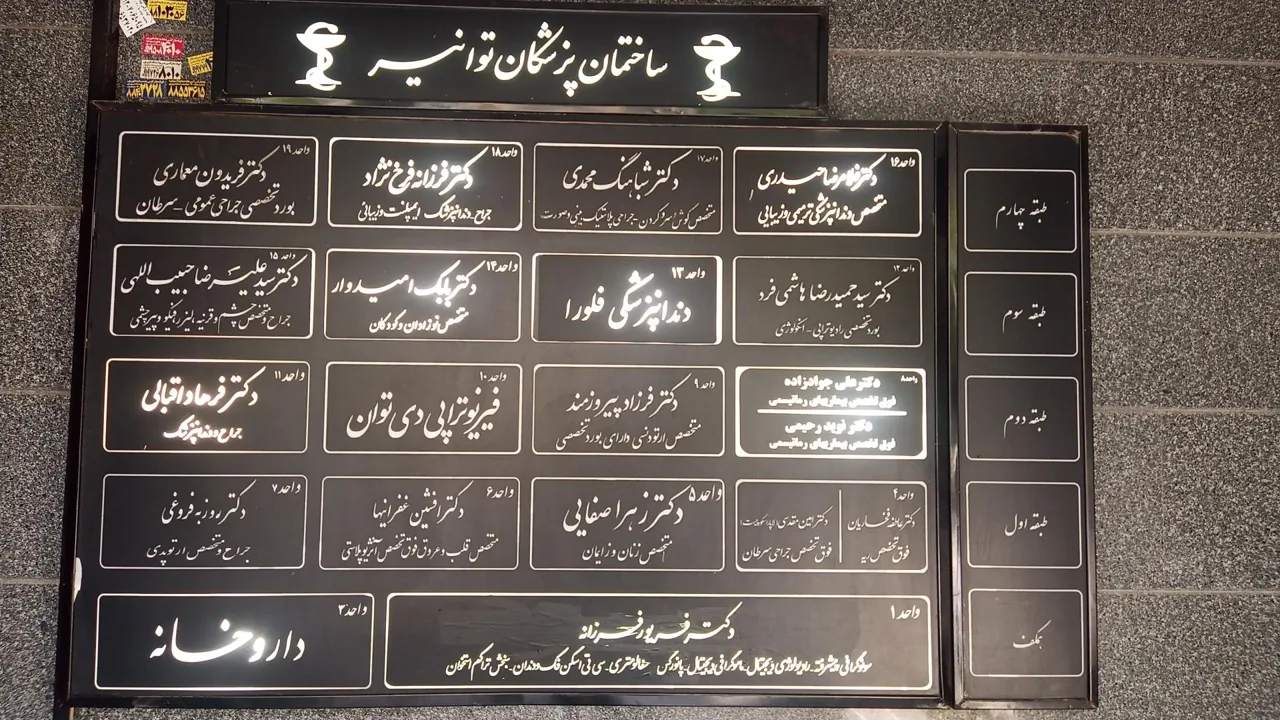 ساختمان پزشکان توانیر
طبقه چهارم
واحد ۱۶
دکتر غلامرضا حیدری
متخصص دندانپزشکی ترمیمی و زیبایی
واحد ۱۷
دکتر شباهنگ محمدی
متخصص گوش، سر و گردن - جراحی پلاستیک بینی و صورت
واحد ۱۸
دکتر فرزانه فرخ نژاد
جراح دندانپزشک ایمپلنت وزیبائی
واحد ۱۹
دکتر فریدون معماری
بورد تخصصی جراحی عمومی - سرطان
طبقه سوم
واحد ۱۲
دکتر سید حمیدرضا هاشمی فرد
بورد تخصصی رادیوتراپی - انکولوژی
واحد ۱۳
دندانپزشکی فلورا
واحد ۱۴
دکتر بابک امیدوار
متخصص نوزادان و کودکان
واحد ۱۵
دکتر سید علیرضا حبیب اللهی
جراح و متخصص چشم و قرنیه لیزر رفرکتیو و پیرچشمی
طبقه دوم
واحد ۸
دکتر علی جوادزاده
فوق تخصص بیماریهای رماتیسمی
دکتر نوید رحیمی
فوق تخصص بیماریهای رماتیسمی
واحد ۹
دکتر فرزاد پیروزمند
متخصص ارتودنسی دارای بورد تخصصی
واحد ۱۰
فیزیوتراپی دی توان
واحد ۱۱
دکتر فرهاد اقبالی
جراح دندانپزشک
طبقه اول
واحد ۴
دکتر عاطفه فخاریان
فوق تخصص ریه
دکتر امین مقدسی (لاپاراسکوپیست)
فوق تخصص جراحی سرطان
واحد ۵
دکتر زهرا صفایی
متخصص زنان و زایمان
واحد ۶
دکتر افشین غفرانیها
متخصص قلب و عروق فوق تخصص آنژیوپلاستی
واحد ۷
دکتر روزبه فروغی
جراح و متخصص ارتوپدی
همکف
واحد ۱
دکتر فریور فرزانه
سونوگرافی پیشرفته - رادیولوژی دیجیتال - ماموگرافی دیجیتال - پانورکس سفالومتری - سی تی اسکن فک و دندان - سنجش تراکم استخوان
واحد ۲
داروخانه